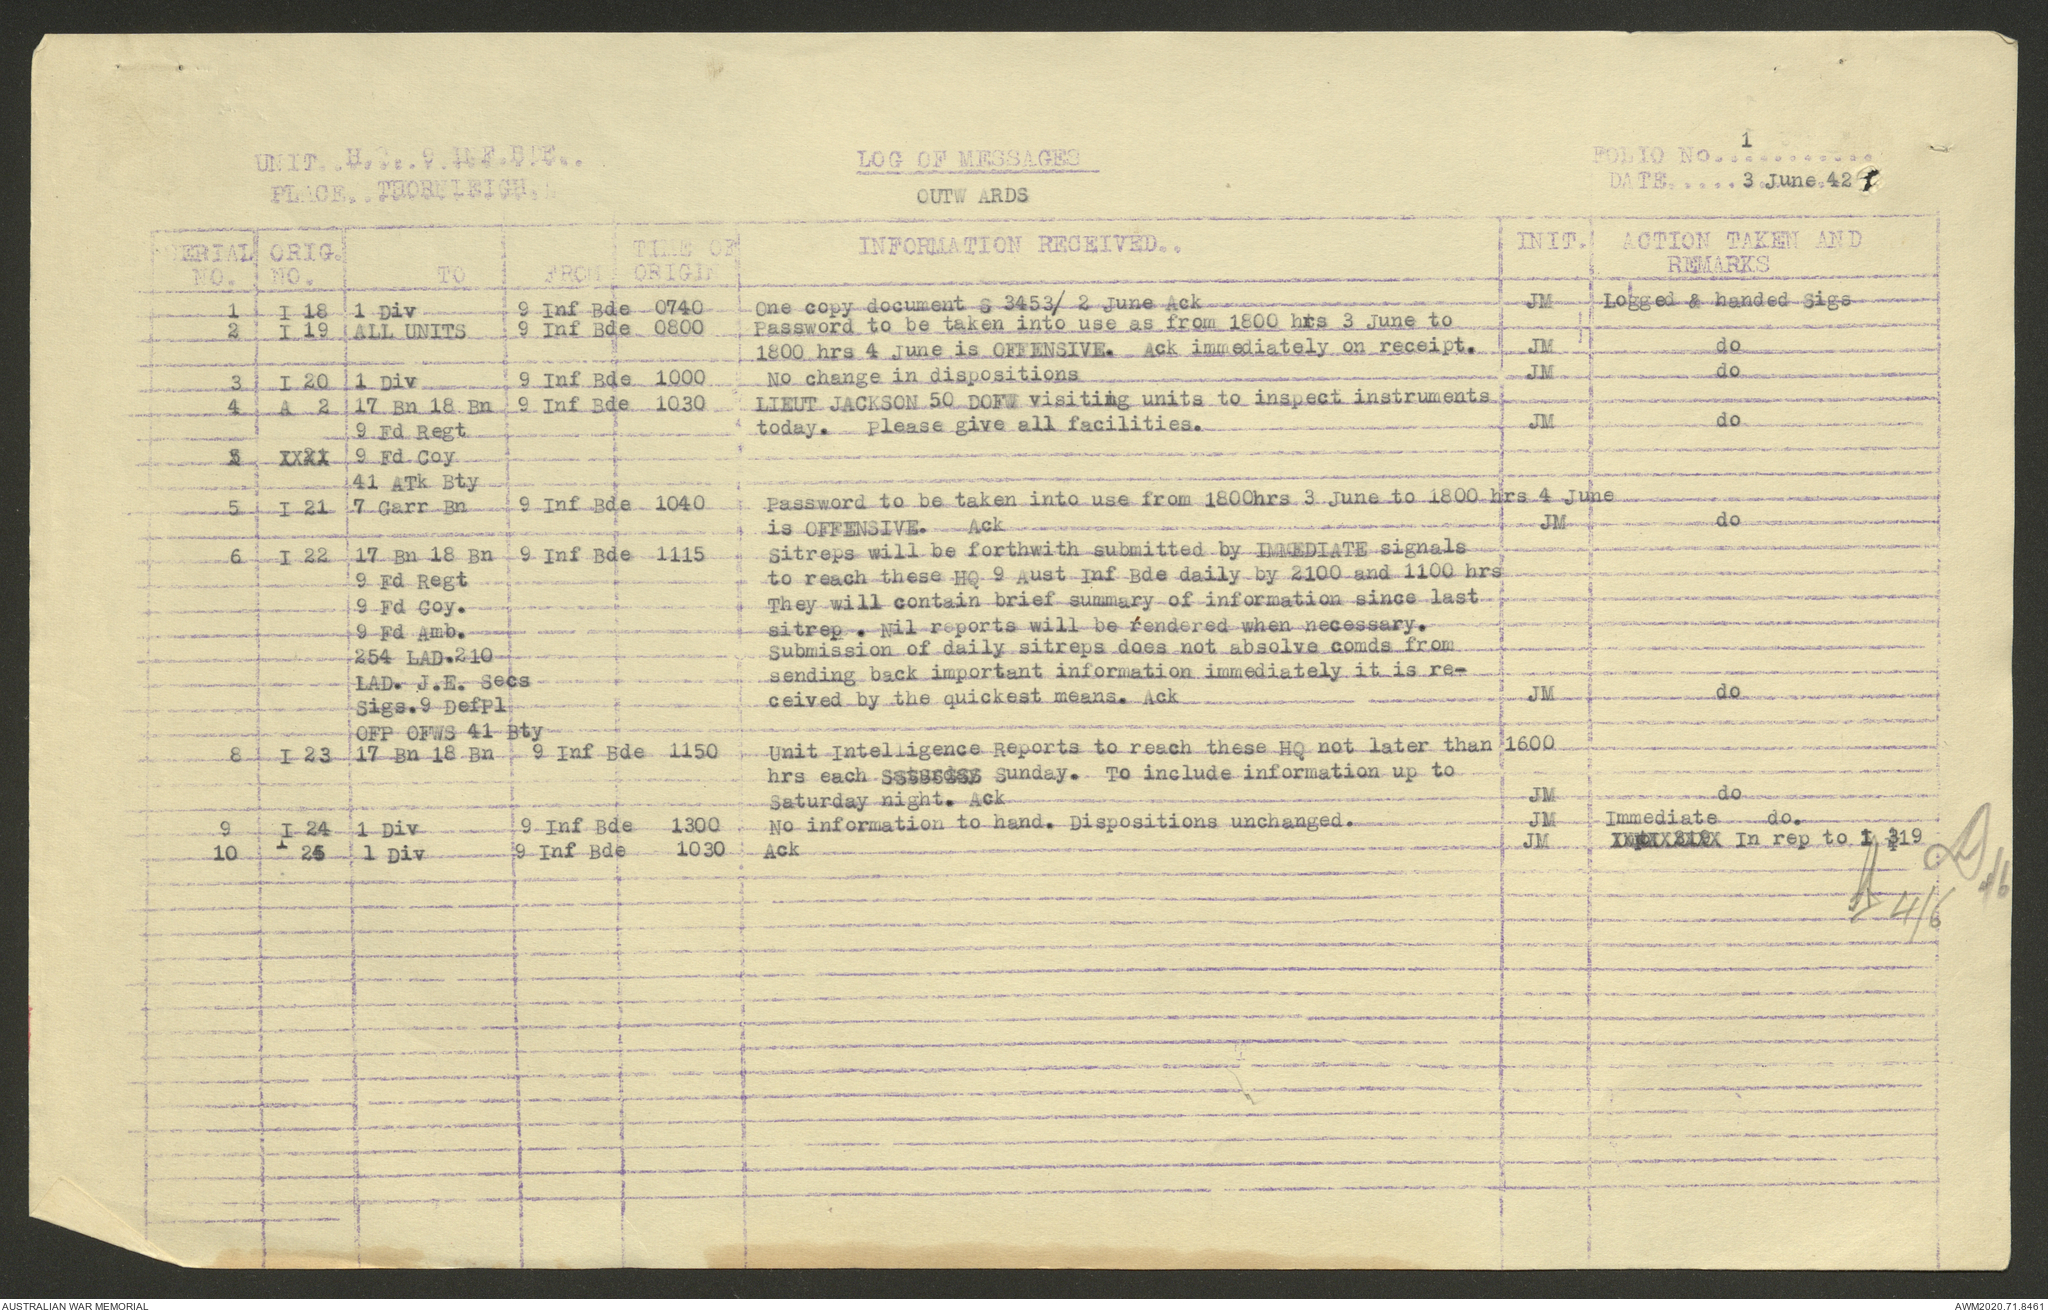 UNIT.. H.Q.. 9 INF.BDE..
LOG OF MESSAGES
FOLIO No. 1
PLACE.. THORNLEIGH.
OUTW ARDS
DATE..... 3 June 42
SERIAL NO. ORIG. NO. TO FROM TIME OF ORIGIN INFORMATION RECEIVED.. INIT. ACTION TAKEN AND REMARKS
1 I 18 1 Div 9 Inf Bde 0740 One copy document S 3453/ 2 June Ack JM Logged & handed Sigs
2 I 19 ALL UNITS 9 Inf Bde 0800 Password to be taken into use as from 1800 hrs 3 June to
1800 hrs 4 June is OFFENSIVE. Ack immediately on receipt. JM do
3 I 20 1 Div 9 Inf Bde 1000 No change in dispositions JM do
4 A 2 17 Bn 18 Bn 9 Inf Bde 1030 LIEUT JACKSON 50 DOFW visiting units to inspect instruments
9 Fd Regt today. Please give all facilities. JM do
5 XX21 9 Fd Coy
41 ATk Bty
5 I 21 7 Garr Bn 9 Inf Bde 1040 Password to be taken into use from 1800hrs 3 June to 1800 hrs 4 June
is OFFENSIVE. Ack JM do
6 I 22 17 Bn 18 Bn 9 Inf Bde 1115 Sitreps will be forthwith submitted by IMMEDIATE signals
9 Fd Regt to reach these HQ 9 Aust Inf Bde daily by 2100 and 1100 hrs
9 Fd Coy. They will contain brief summary of information since last
9 Fd Amb. sitrep . Nil reports will be rendered when necessary.
254 LAD.210 Submission of daily sitreps does not absolve comds from
LAD. J.E. Secs sending back important information immediately it is re-
Sigs.9 DefPl ceived by the quickest means. Ack JM do
OFP OFWS 41 Bty
8 I 23 17 Bn 18 Bn 9 Inf Bde 1150 Unit Intelligence Reports to reach these HQ not later than 1600
hrs each Sunday. To include information up to
Saturday night. Ack JM do
9 I 24 1 Div 9 Inf Bde 1300 No information to hand. Dispositions unchanged. JM Immediate do.
10 I 25 1 Div 9 Inf Bde 1030 Ack JM In rep to I 319
4/6
AUSTRALIAN WAR MEMORIAL
AWM2020.71.8461